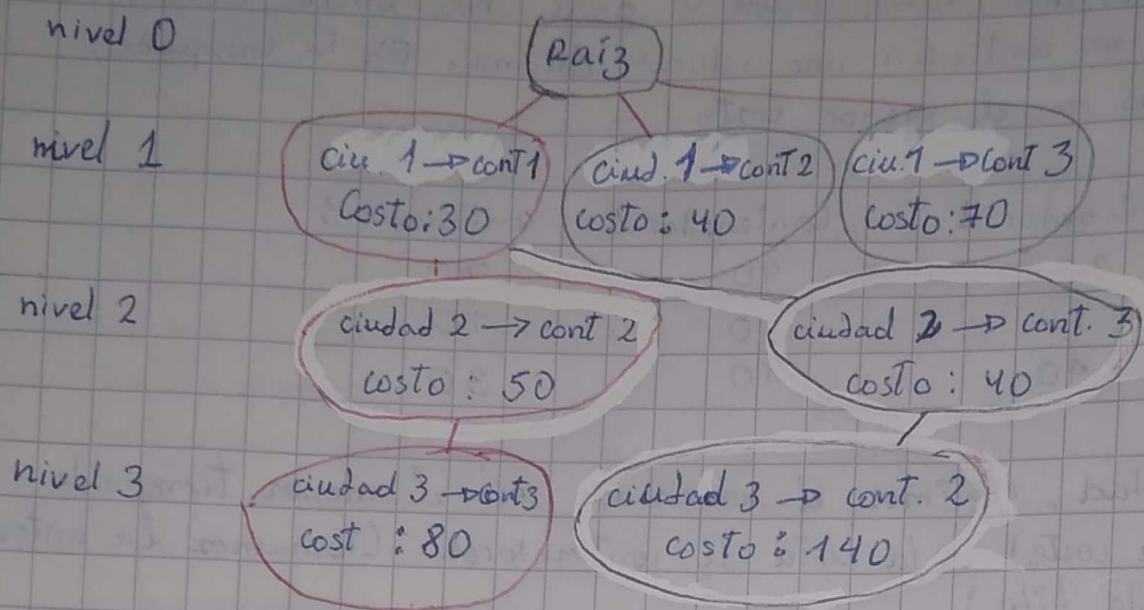 nivel 0
Raíz
nivel 1
ciu. 1 → cont 1
Costo: 30
ciud. 1 → cont 2
costo: 40
ciu. 1 → cont 3
costo: 70
nivel 2
ciudad 2 → cont 2
costo: 50
ciudad 2 → cont. 3
costo: 40
nivel 3
ciudad 3 → cont 3
cost: 80
ciudad 3 → cont. 2
costo: 140